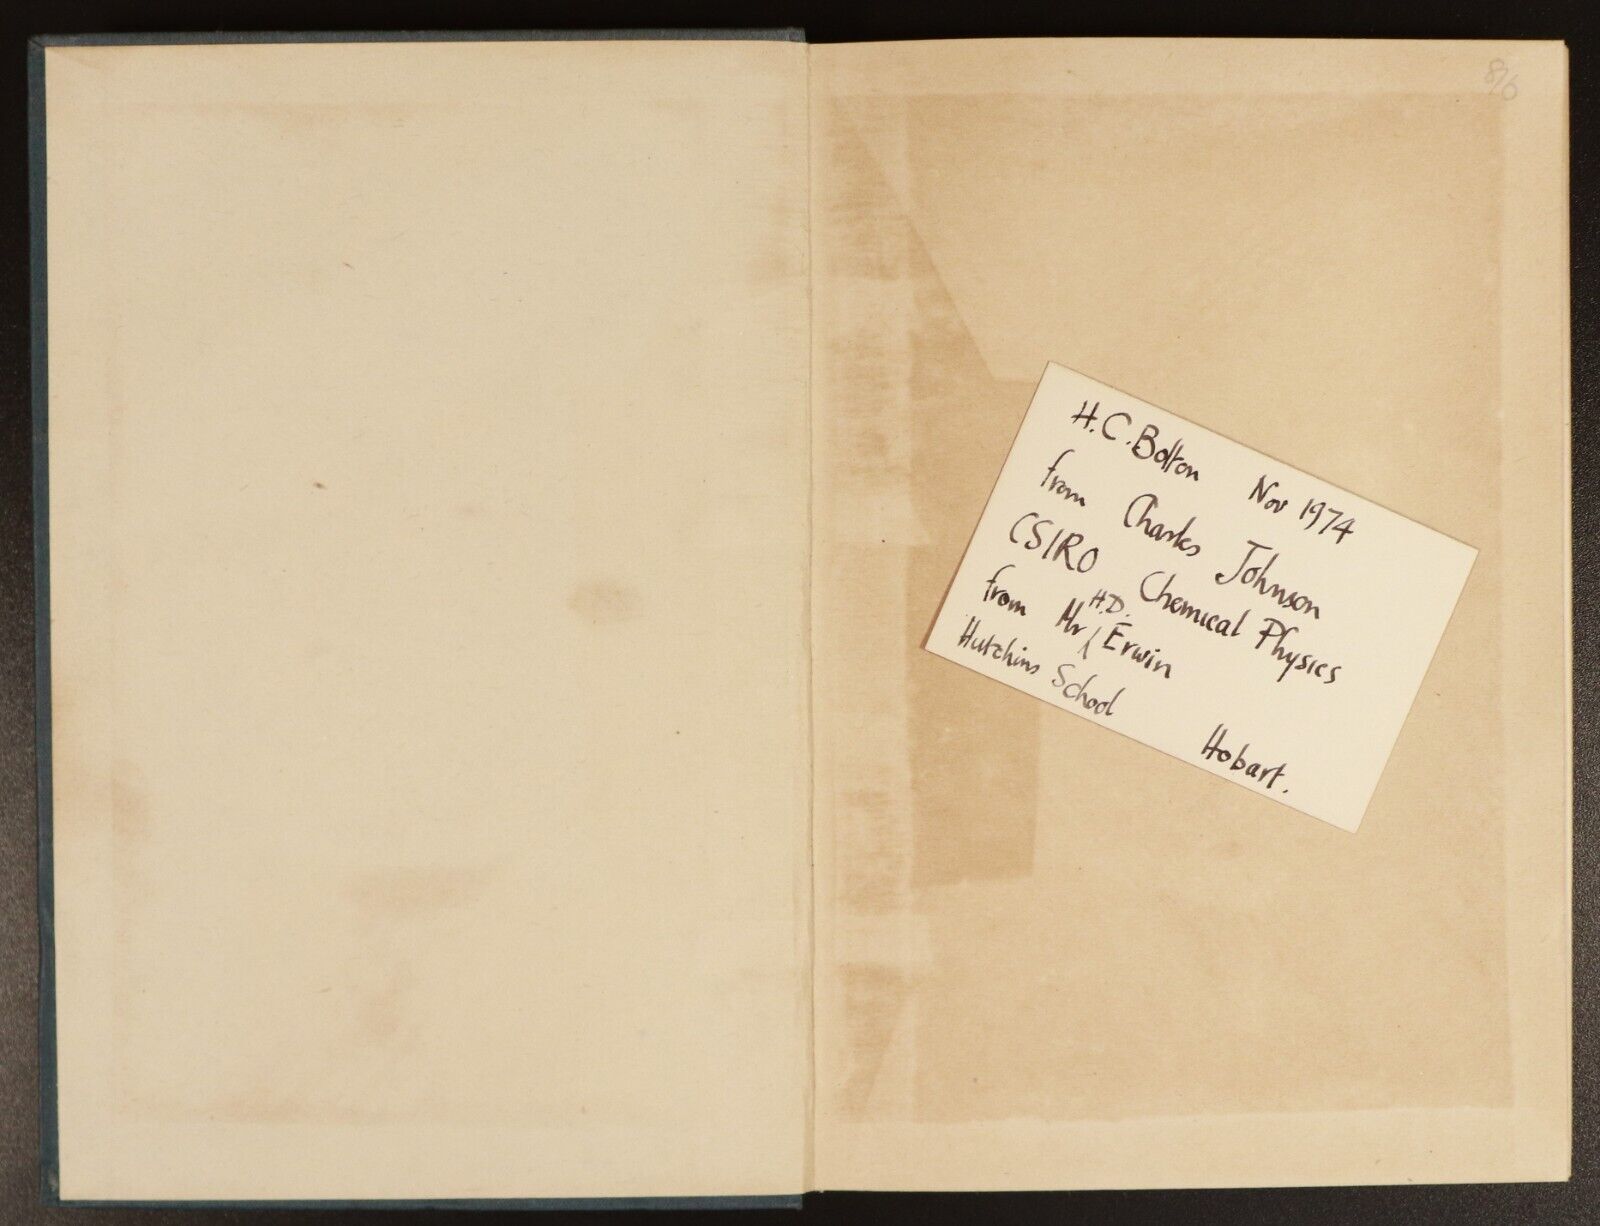 8/6
H.C. Bolton Nov 1974
from Charles Johnson
CSIRO Chemical Physics
from Mr H.D. Erwin
Hutchins School
Hobart.